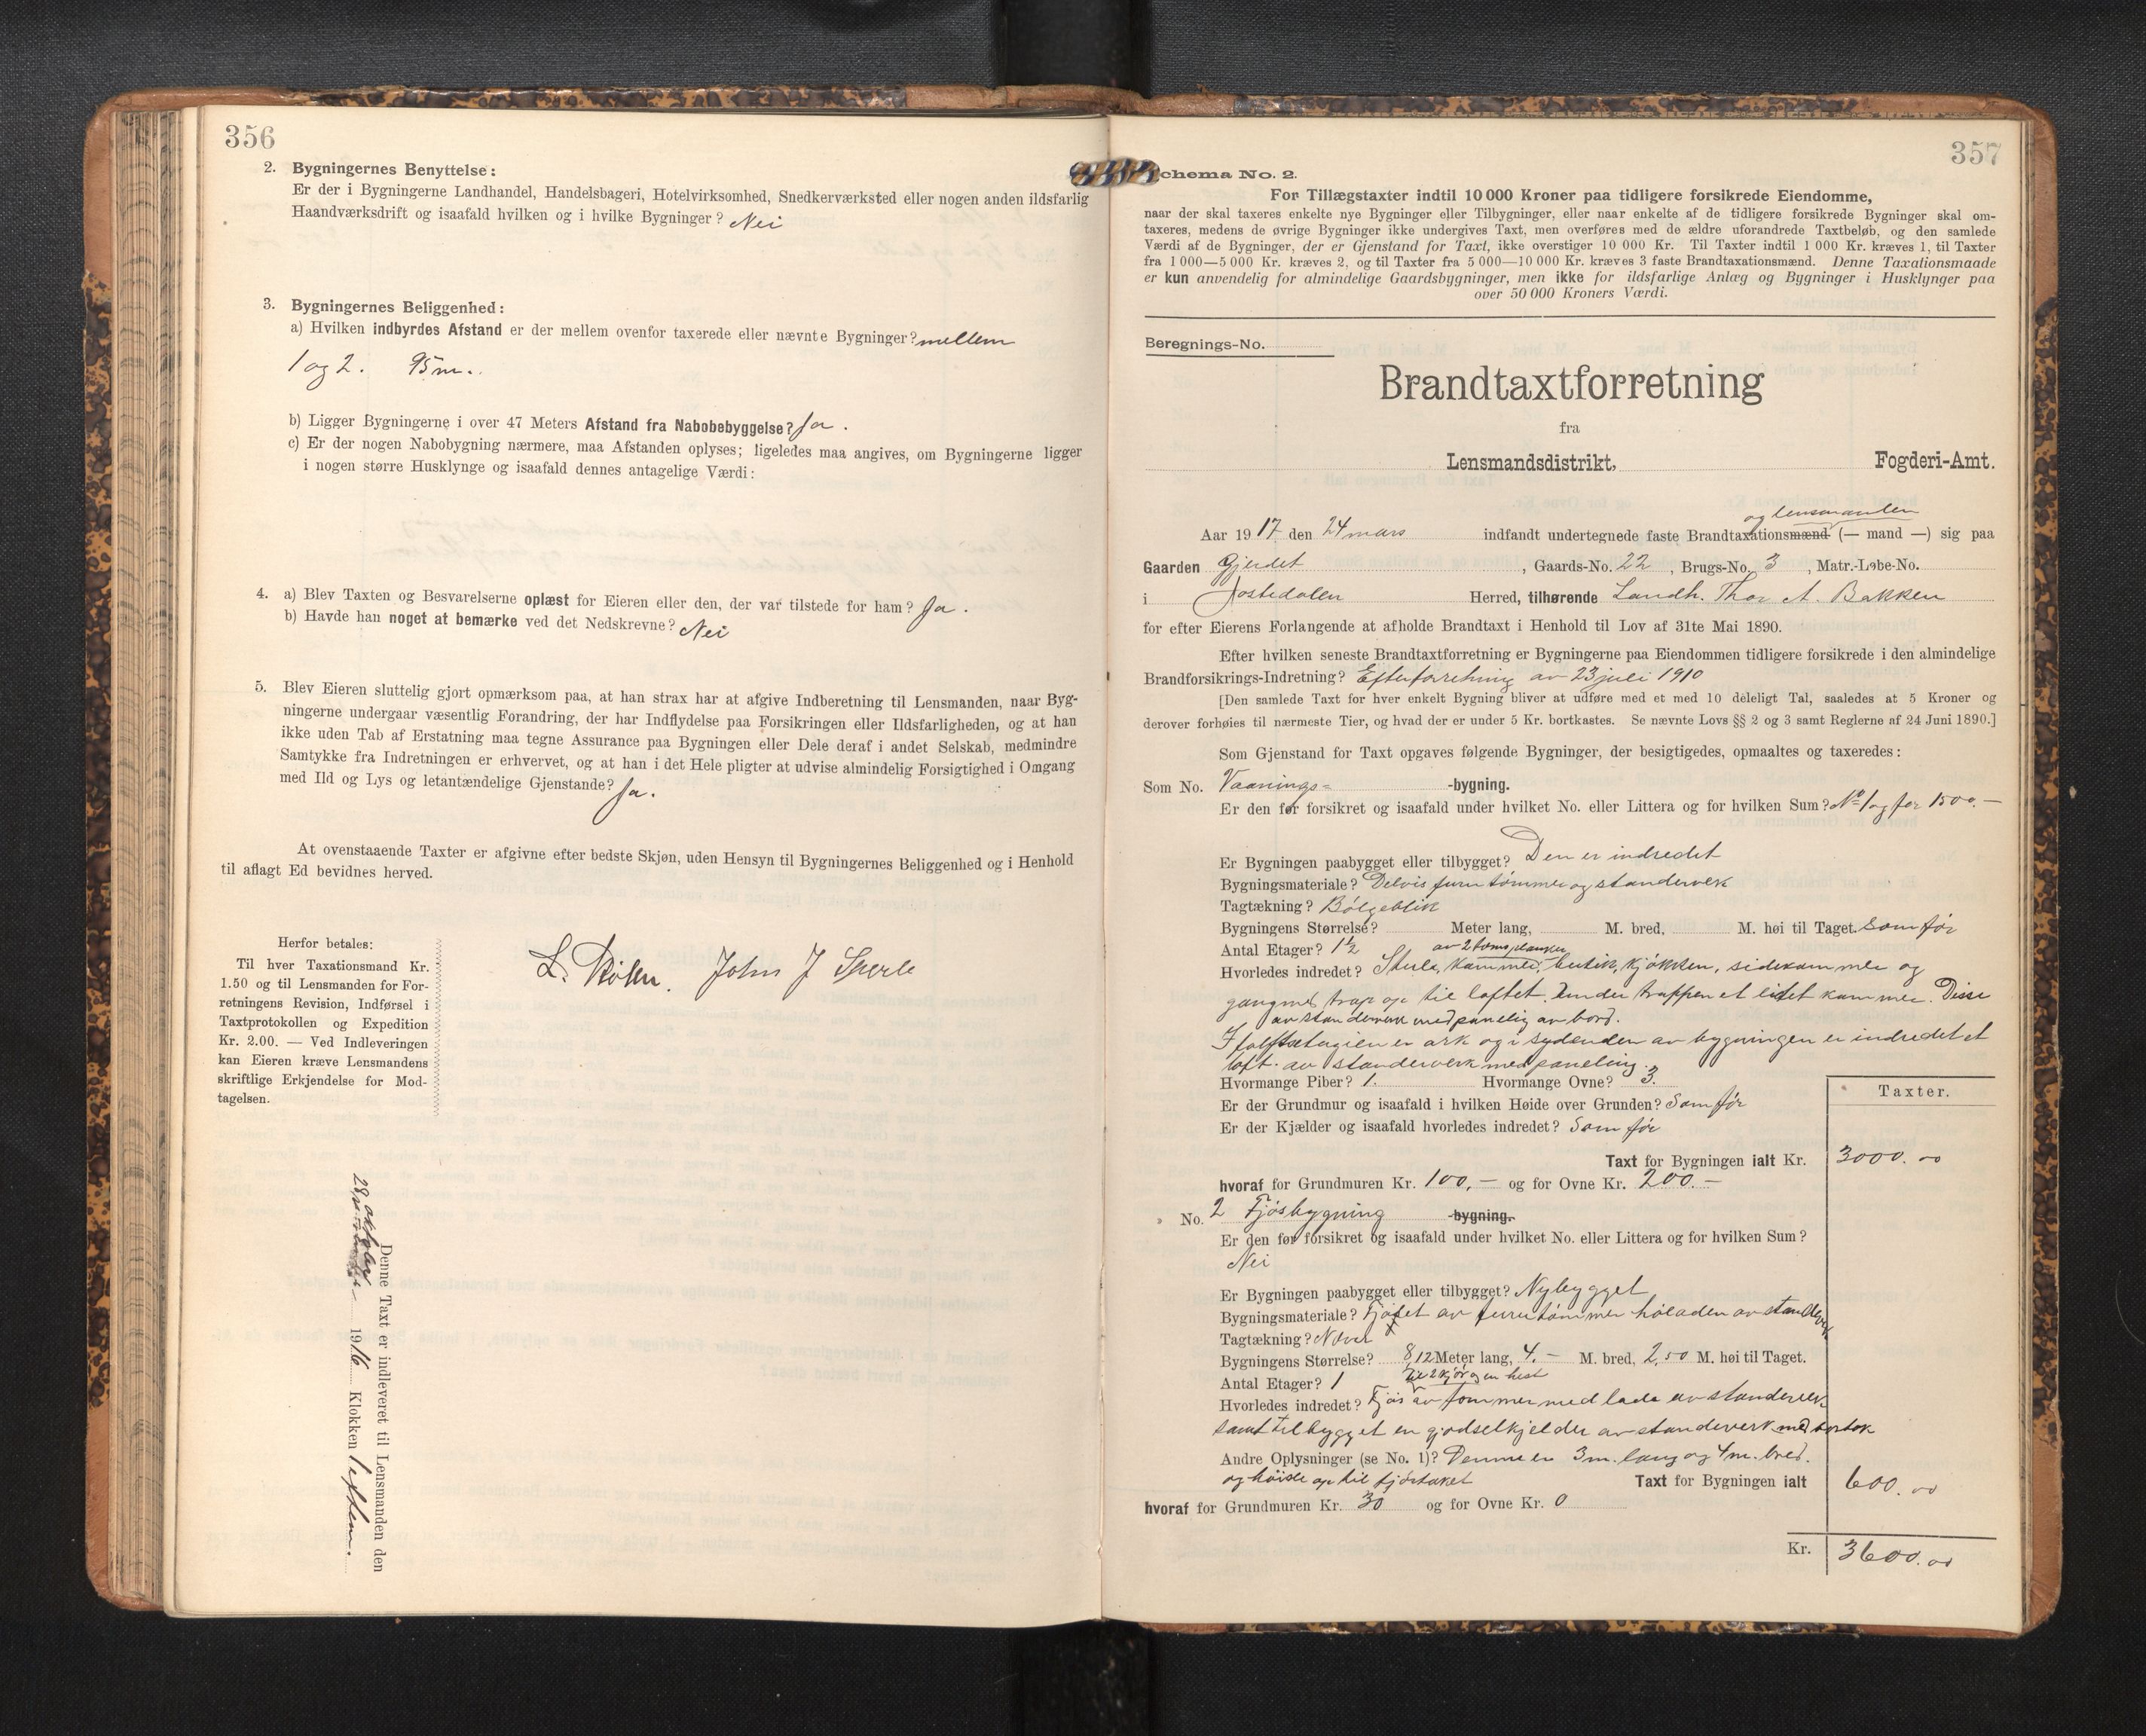 356
2. Bygningernes Benyttelse:
Er der i Bygningerne Landhandel, Handelsbageri, Hotelvirksomhed, Snedkerværksted eller nogen anden ildsfarlig
Haandværksdrift og isaafald hvilken og i hvilke Bygninger? Nei
3. Bygningernes Beliggenhed:
a) Hvilken indbyrdes Afstand er der mellem ovenfor taxerede eller nævnte Bygninger? mellem
1 og 2. 95 m.
b) Ligger Bygningerne i over 47 Meters Afstand fra Nabobebyggelse? Ja.
c) Er der nogen Nabobygning nærmere, maa Afstanden oplyses; ligeledes maa angives, om Bygningerne ligger
i nogen større Husklynge og isaafald dennes antagelige Værdi:
4. a) Blev Taxten og Besvarelserne oplæst for Eieren eller den, der var tilstede for ham? Ja.
b) Havde han noget at bemærke ved det Nedskrevne? Nei
5. Blev Eieren sluttelig gjort opmærksom paa, at han strax har at afgive Indberetning til Lensmanden, naar Byg-
ningerne undergaar væsentlig Forandring, der har Indflydelse paa Forsikringen eller Ildsfarligheden, og at han
ikke uden Tab af Erstatning maa tegne Assurance paa Bygningen eller Dele deraf i andet Selskab, medmindre
Samtykke fra Indretningen er erhvervet, og at han i det Hele pligter at udvise almindelig Forsigtighed i Omgang
med Ild og Lys og letantændelige Gjenstande? Ja.
At ovenstaaende Taxter er afgivne efter bedste Skjøn, uden Hensyn til Bygningernes Beliggenhed og i Henhold
til aflagt Ed bevidnes herved.
Herfor betales:
Til hver Taxationsmand Kr.
1.50 og til Lensmanden for For-
retningens Revision, Indførsel i
Taxtprotokollen og Expedition
Kr. 2.00. — Ved Indleveringen
kan Eieren kræve Lensmandens
skriftlige Erkjendelse for Mod-
tagelsen.
L. John J Sperle
Denne Taxt er indleveret til Lensmanden den
28 oktober 1916 Klokken
357
Schema No. 2.
For Tillægstaxter indtil 10 000 Kroner paa tidligere forsikrede Eiendomme,
naar der skal taxeres enkelte nye Bygninger eller Tilbygninger, eller naar enkelte af de tidligere forsikrede Bygninger skal om-
taxeres, medens de øvrige Bygninger ikke undergives Taxt, men overføres med de ældre uforandrede Taxtbeløb, og den samlede
Værdi af de Bygninger, der er Gjenstand for Taxt, ikke overstiger 10 000 Kr. Til Taxter indtil 1 000 Kr. kræves 1, til Taxter
fra 1 000—5 000 Kr. kræves 2, og til Taxter fra 5 000—10 000 Kr. kræves 3 faste Brandtaxationsmænd. Denne Taxationsmaade
er kun anvendelig for almindelige Gaardsbygninger, men ikke for ildsfarlige Anlæg og Bygninger i Husklynger paa
over 50 000 Kroners Værdi.
Beregnings-No.
Brandtaxtforretning
fra
Lensmandsdistrikt, Fogderi-Amt.
og lensmanden
Aar 1917 den 24 mars indfandt undertegnede faste Brandtaxationsmænd (— mand —) sig paa
Gaarden Gjerdet, Gaards-No. 22, Brugs-No. 3, Matr.-Løbe-No.
i Jostedalen Herred, tilhørende Landh. Thor A. Bakken
for efter Eierens Forlangende at afholde Brandtaxt i Henhold til Lov af 31te Mai 1890.
Efter hvilken seneste Brandtaxtforretning er Bygningerne paa Eiendommen tidligere forsikrede i den almindelige
Brandforsikrings-Indretning? Efter forretning av 23 juli 1910
[Den samlede Taxt for hver enkelt Bygning bliver at udføre med et med 10 deleligt Tal, saaledes at 5 Kroner og
derover forhøies til nærmeste Tier, og hvad der er under 5 Kr. bortkastes. Se nævnte Lovs §§ 2 og 3 samt Reglerne af 24 Juni 1890.]
Som Gjenstand for Taxt opgaves følgende Bygninger, der besigtigedes, opmaaltes og taxeredes:
Som No. Vaanings= -bygning.
Er den før forsikret og isaafald under hvilket No. eller Littera og for hvilken Sum? No 1 og for 1500.—
Er Bygningen paabygget eller tilbygget? Den er indredet
Bygningsmateriale? Delvis furu tømmer og standerverk
Tagtækning? Bølgeblik
Bygningens Størrelse? Meter lang, M. bred, M. høi til Taget. Som før
Antal Etager? 1½ av 2 toms planker
Hvorledes indredet? Stue, kammer, butik, kjøkken, sidekammer og
gang med trap op til loftet. Under trappen et lidet kammer. Disse
av standerverk med paneling av bord.
I loftsetagien er ark og i sydenden av bygningen er indredet et
loft av standerverk med paneling.
Hvormange Piber? 1. Hvormange Ovne? 3.
Er der Grundmur og isaafald i hvilken Høide over Grunden? Som før
Er der Kjælder og isaafald hvorledes indredet? Som før
Taxter.
Taxt for Bygningen ialt Kr. 3000.00
hvoraf for Grundmuren Kr. 100,— og for Ovne Kr. 200.—
No. 2 Fjøsbygning -bygning.
Er den før forsikret og isaafald under hvilket No. eller Littera og for hvilken Sum?
Nei
Er Bygningen paabygget eller tilbygget? Nybygget
Bygningsmateriale? Fjøset av furutømmer høladen av standverk
Tagtækning? Never
Bygningens Størrelse? 8,12 Meter lang, 4.— M. bred, 2,50 M. høi til Taget.
Antal Etager? 1 til 2 kjør og en hest
Hvorledes indredet? Fjøs av tømmer med lade av standerverk
samt tilbygget en gjødselkjelder av standerverk med bortak
Andre Oplysninger (se No. 1)? Denne er 3 m. lang og 4 m. bred.
og høide op til fjøstaket Taxt for Bygningen ialt 600.00
hvoraf for Grundmuren Kr. 30 og for Ovne Kr. 0
Kr. 3600.00